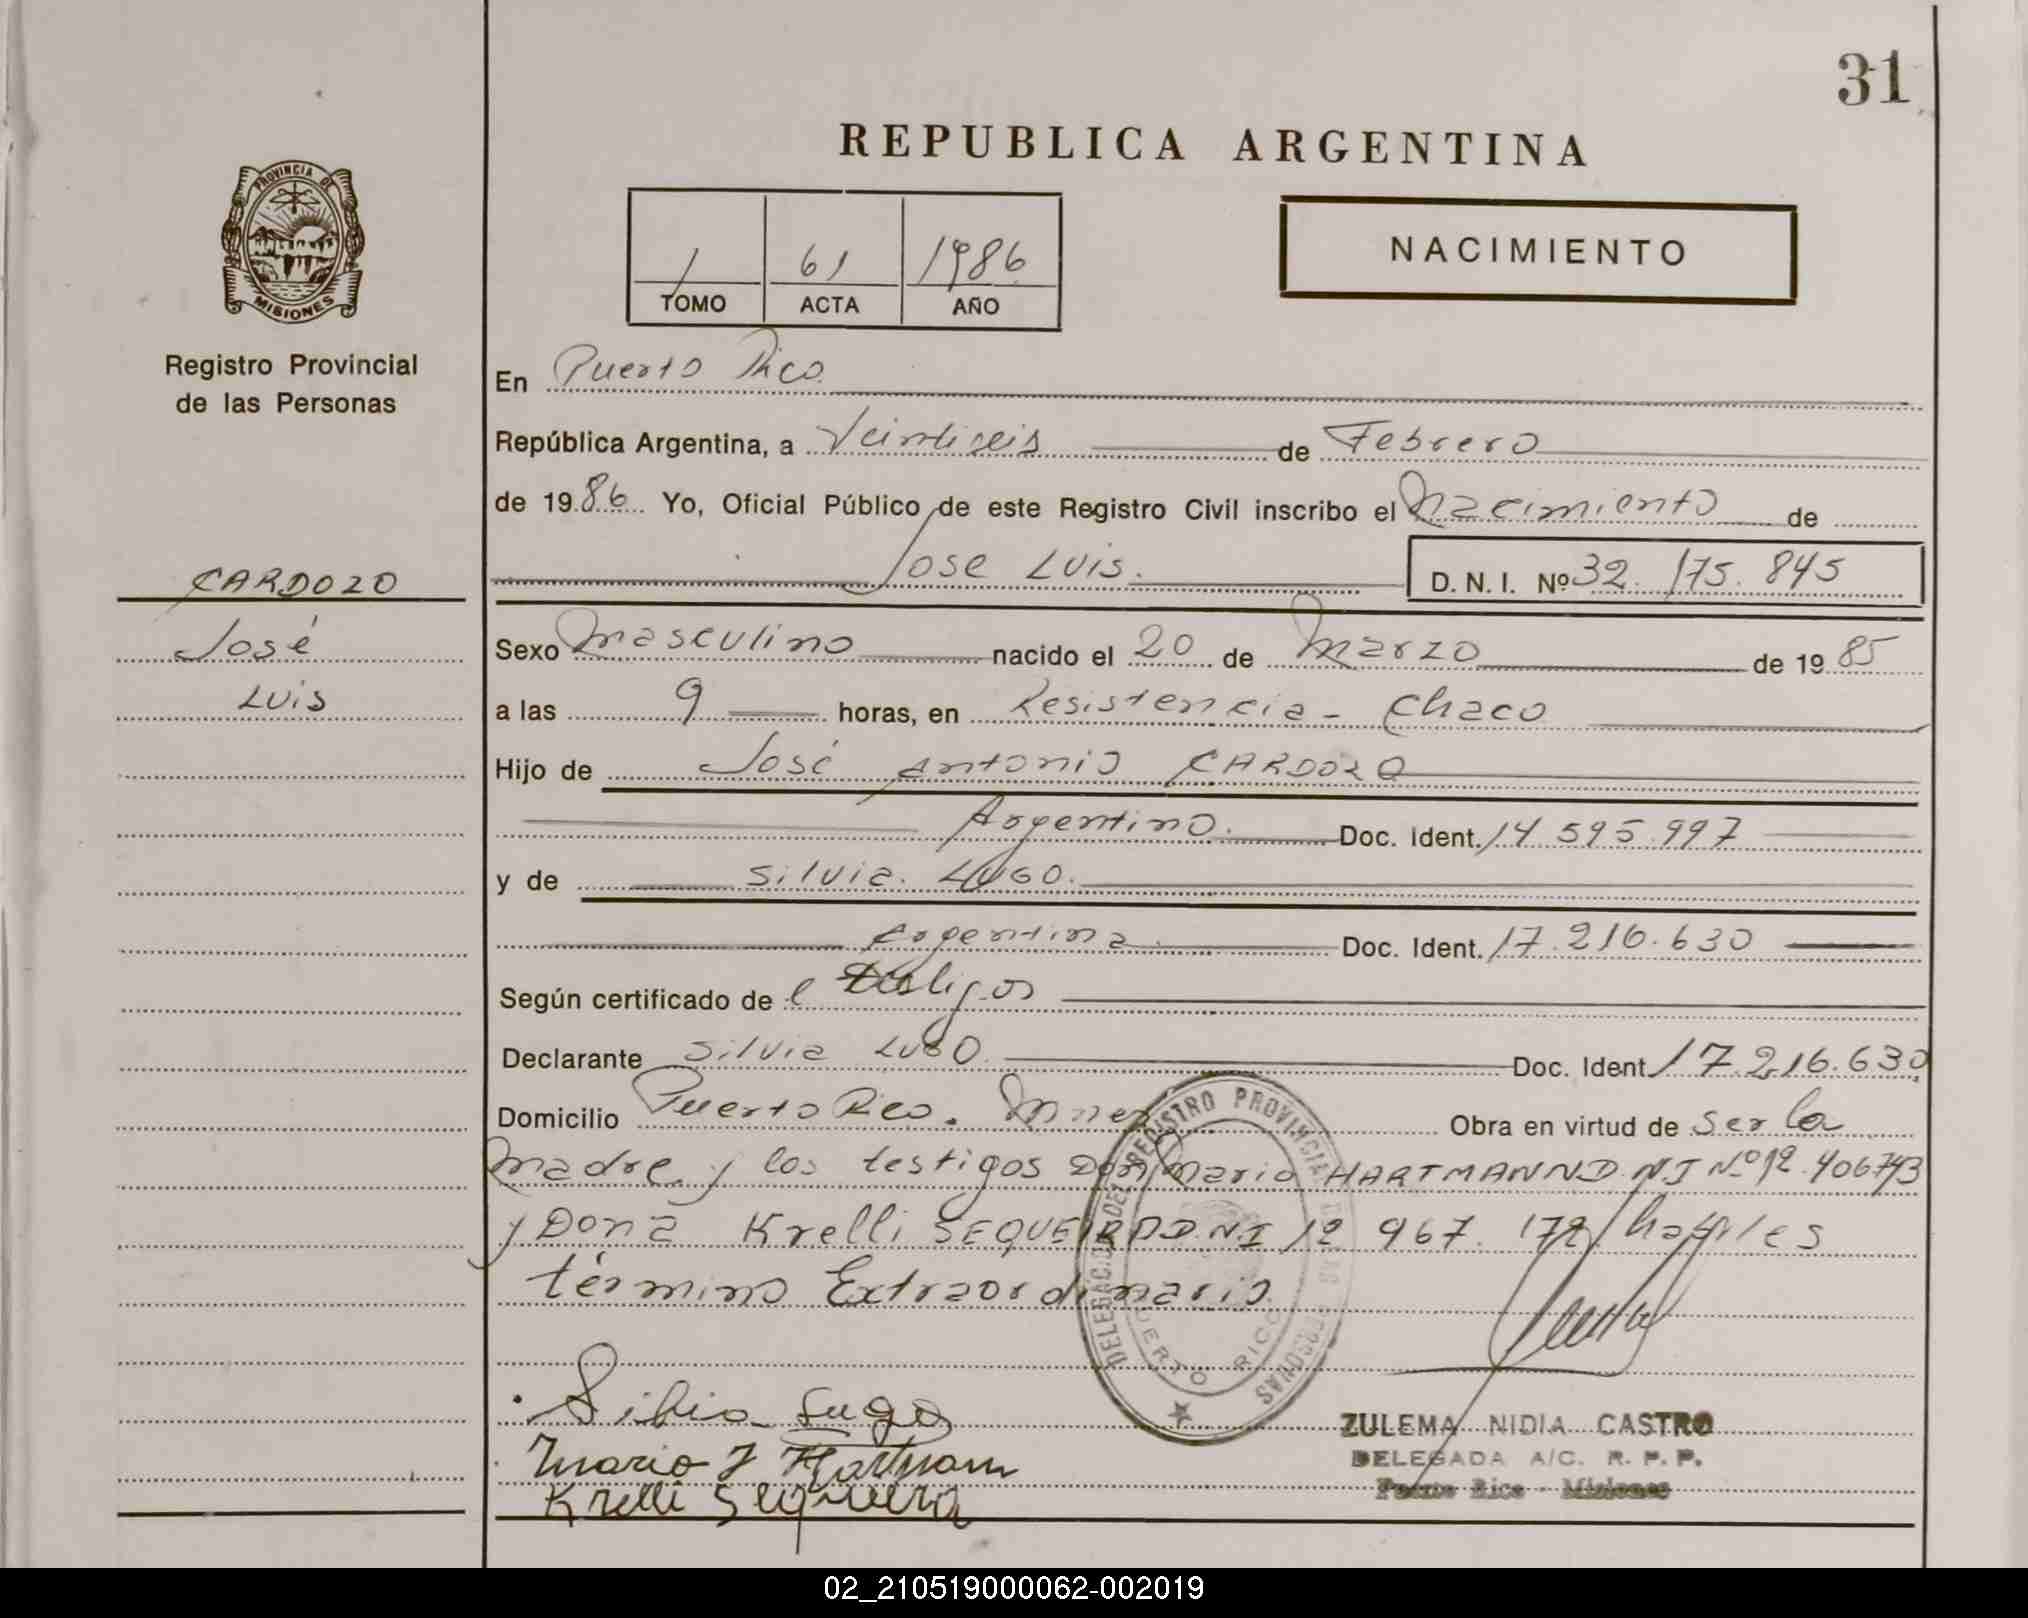 31
REPUBLICA ARGENTINA
PROVINCIA DE
MISIONES
Registro Provincial
de las Personas
1 61 1986
TOMO ACTA AÑO
NACIMIENTO
En Puerto Rico
República Argentina, a Veintiseis de Febrero
de 1986. Yo, Oficial Público de este Registro Civil inscribo el Nacimiento de
Jose Luis. D. N. I. Nº 32.175.845
CARDOZO
José
Luis
Sexo Masculino nacido el 20 de Marzo de 1985
a las 9 horas, en Resistencia - Chaco
Hijo de José Antonio CARDOZO
Argentino. Doc. Ident. 14.595.997
y de Silvia LUGO.
Argentina Doc. Ident. 17.216.630
Según certificado de
Declarante Silvia LUGO. Doc. Ident. 17.216.630
Domicilio Puerto Rico. Mnes Obra en virtud de ser la
madre y los testigos Don Mario HARTMANN D.N.I Nº 12.406743
y Dona Krelli SEQUEIRA D.N.I 12 967.172 habiles
término Extraordinario
DELEGACION DEL REGISTRO PROVINCIAL DE LAS PERSONAS
PUERTO RICO
Silvia Lugo
Mario J Hartmann
Krelli Sequeira
ZULEMA NIDIA CASTRO
DELEGADA A/C. R. P. P.
Puerto Rico - Misiones
02_210519000062-002019